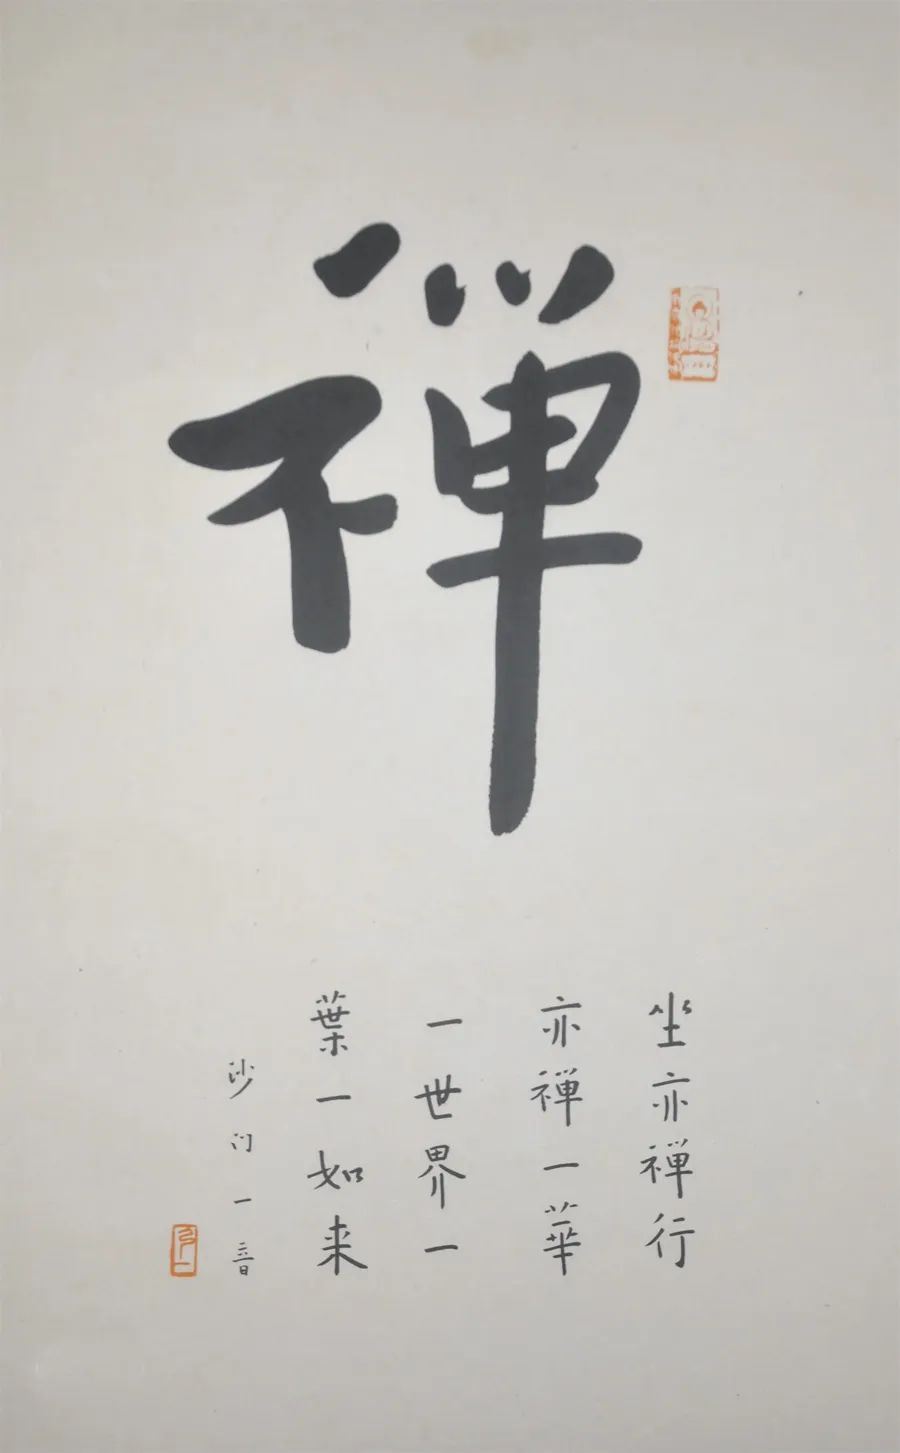 禪
坐亦禪行
亦禪一華
一世界一
葉一如来
沙门一音